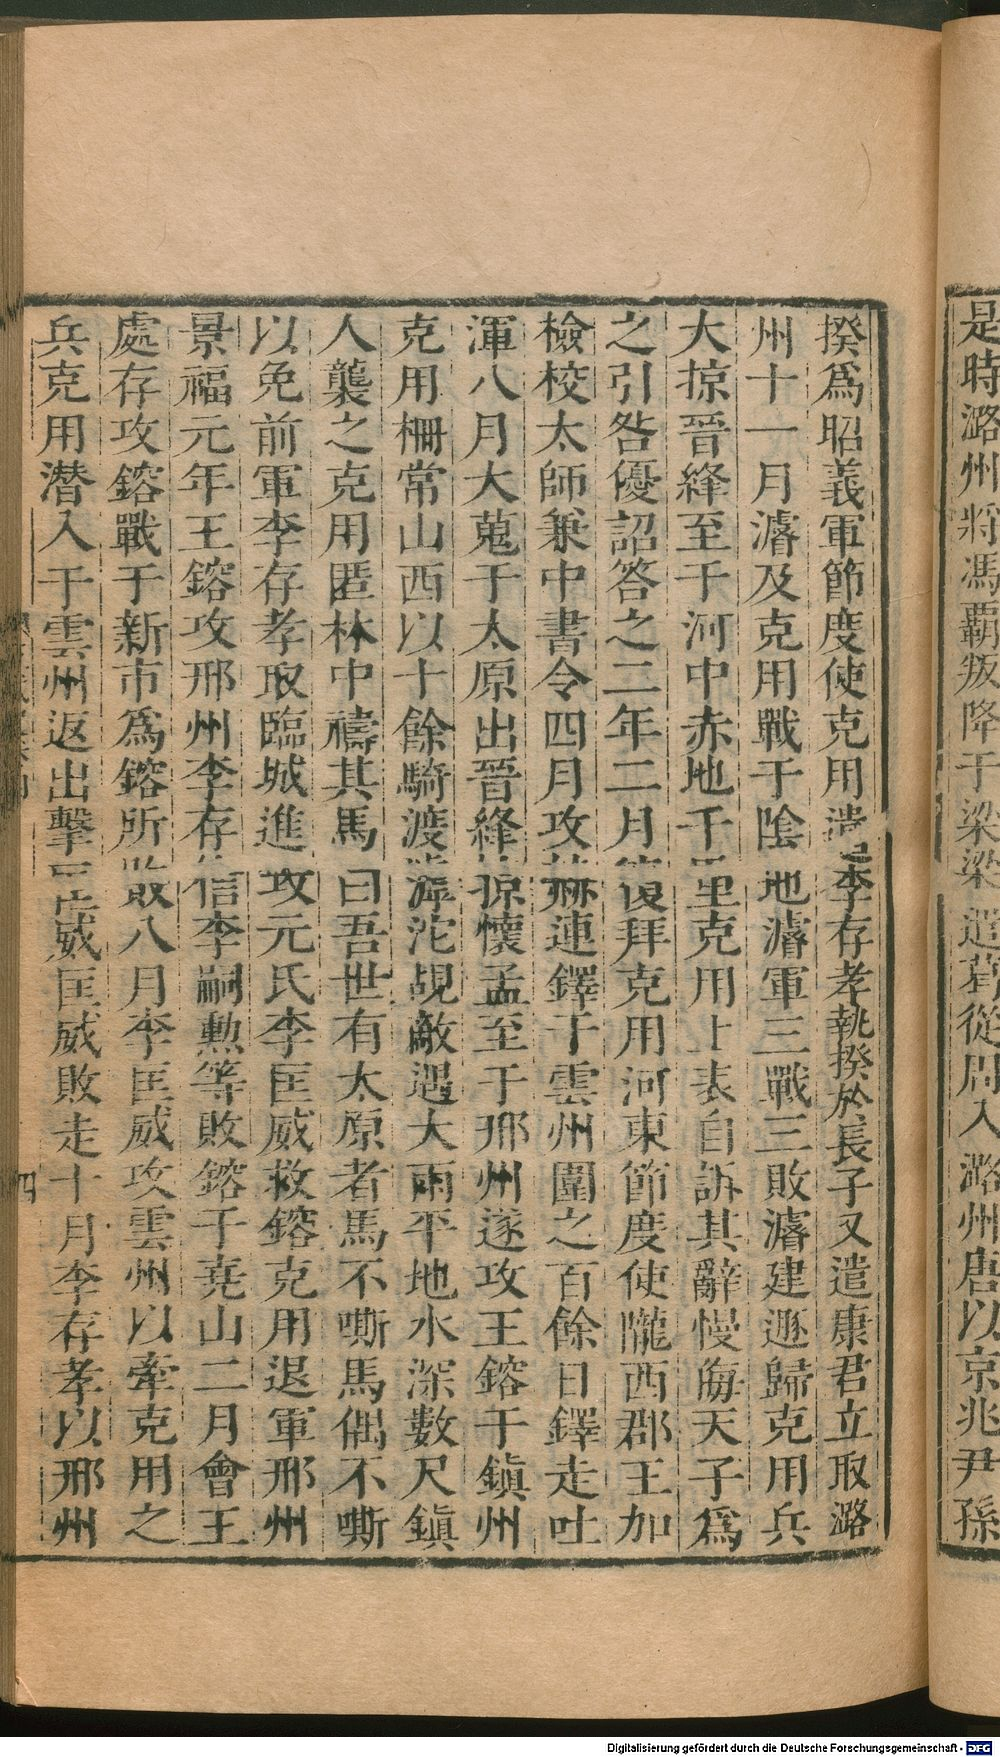 是時潞州將馮霸叛降于梁梁遣葛從周入潞州唐以京兆尹孫
揆爲昭義軍節度使克用遣李存孝執揆於長子又遣康君立取潞
州十一月濬及克用戰于陰地濬軍三戰三敗濬建遯歸克用兵
大掠晉絳至于河中赤地千里克用上表自訴其辭慢侮天子爲
之引咎優詔答之二年二月復拜克用河東節度使隴西郡王加
檢校太師兼中書令四月攻赫連鐸于雲州圍之百餘日鐸走吐
渾八月大蒐于太原出晉絳掠懷孟至于邢州遂攻王鎔于鎮州
克用柵常山西以十餘騎渡滹沱覘敵遇大雨平地水深數尺鎮
人襲之克用匿林中禱其馬曰吾世有太原者馬不嘶馬偶不嘶
以免前軍李存孝取臨城進攻元氏李匡威救鎔克用退軍邢州
景福元年王鎔攻邢州李存信李嗣勲等敗鎔于堯山二月會王
處存攻鎔戰于新市爲鎔所敗八月李匡威攻雲州以牽克用之
兵克用潜入于雲州返出擊匡威匡威敗走十月李存孝以邢州
四
Digitalisierung gefördert durch die Deutsche Forschungsgemeinschaft - DFG